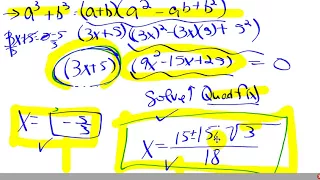 → a³ + b³ = (a+b)(a² - ab + b²)
3x+5=0 -5 (3x+5)((3x)² - (3x)(5) + 5²)
(3x+5) (9x² - 15x + 25) = 0
Solve ↑ Quadf(x)
X = -5/3
X = 15 ± 15i√3 / 18